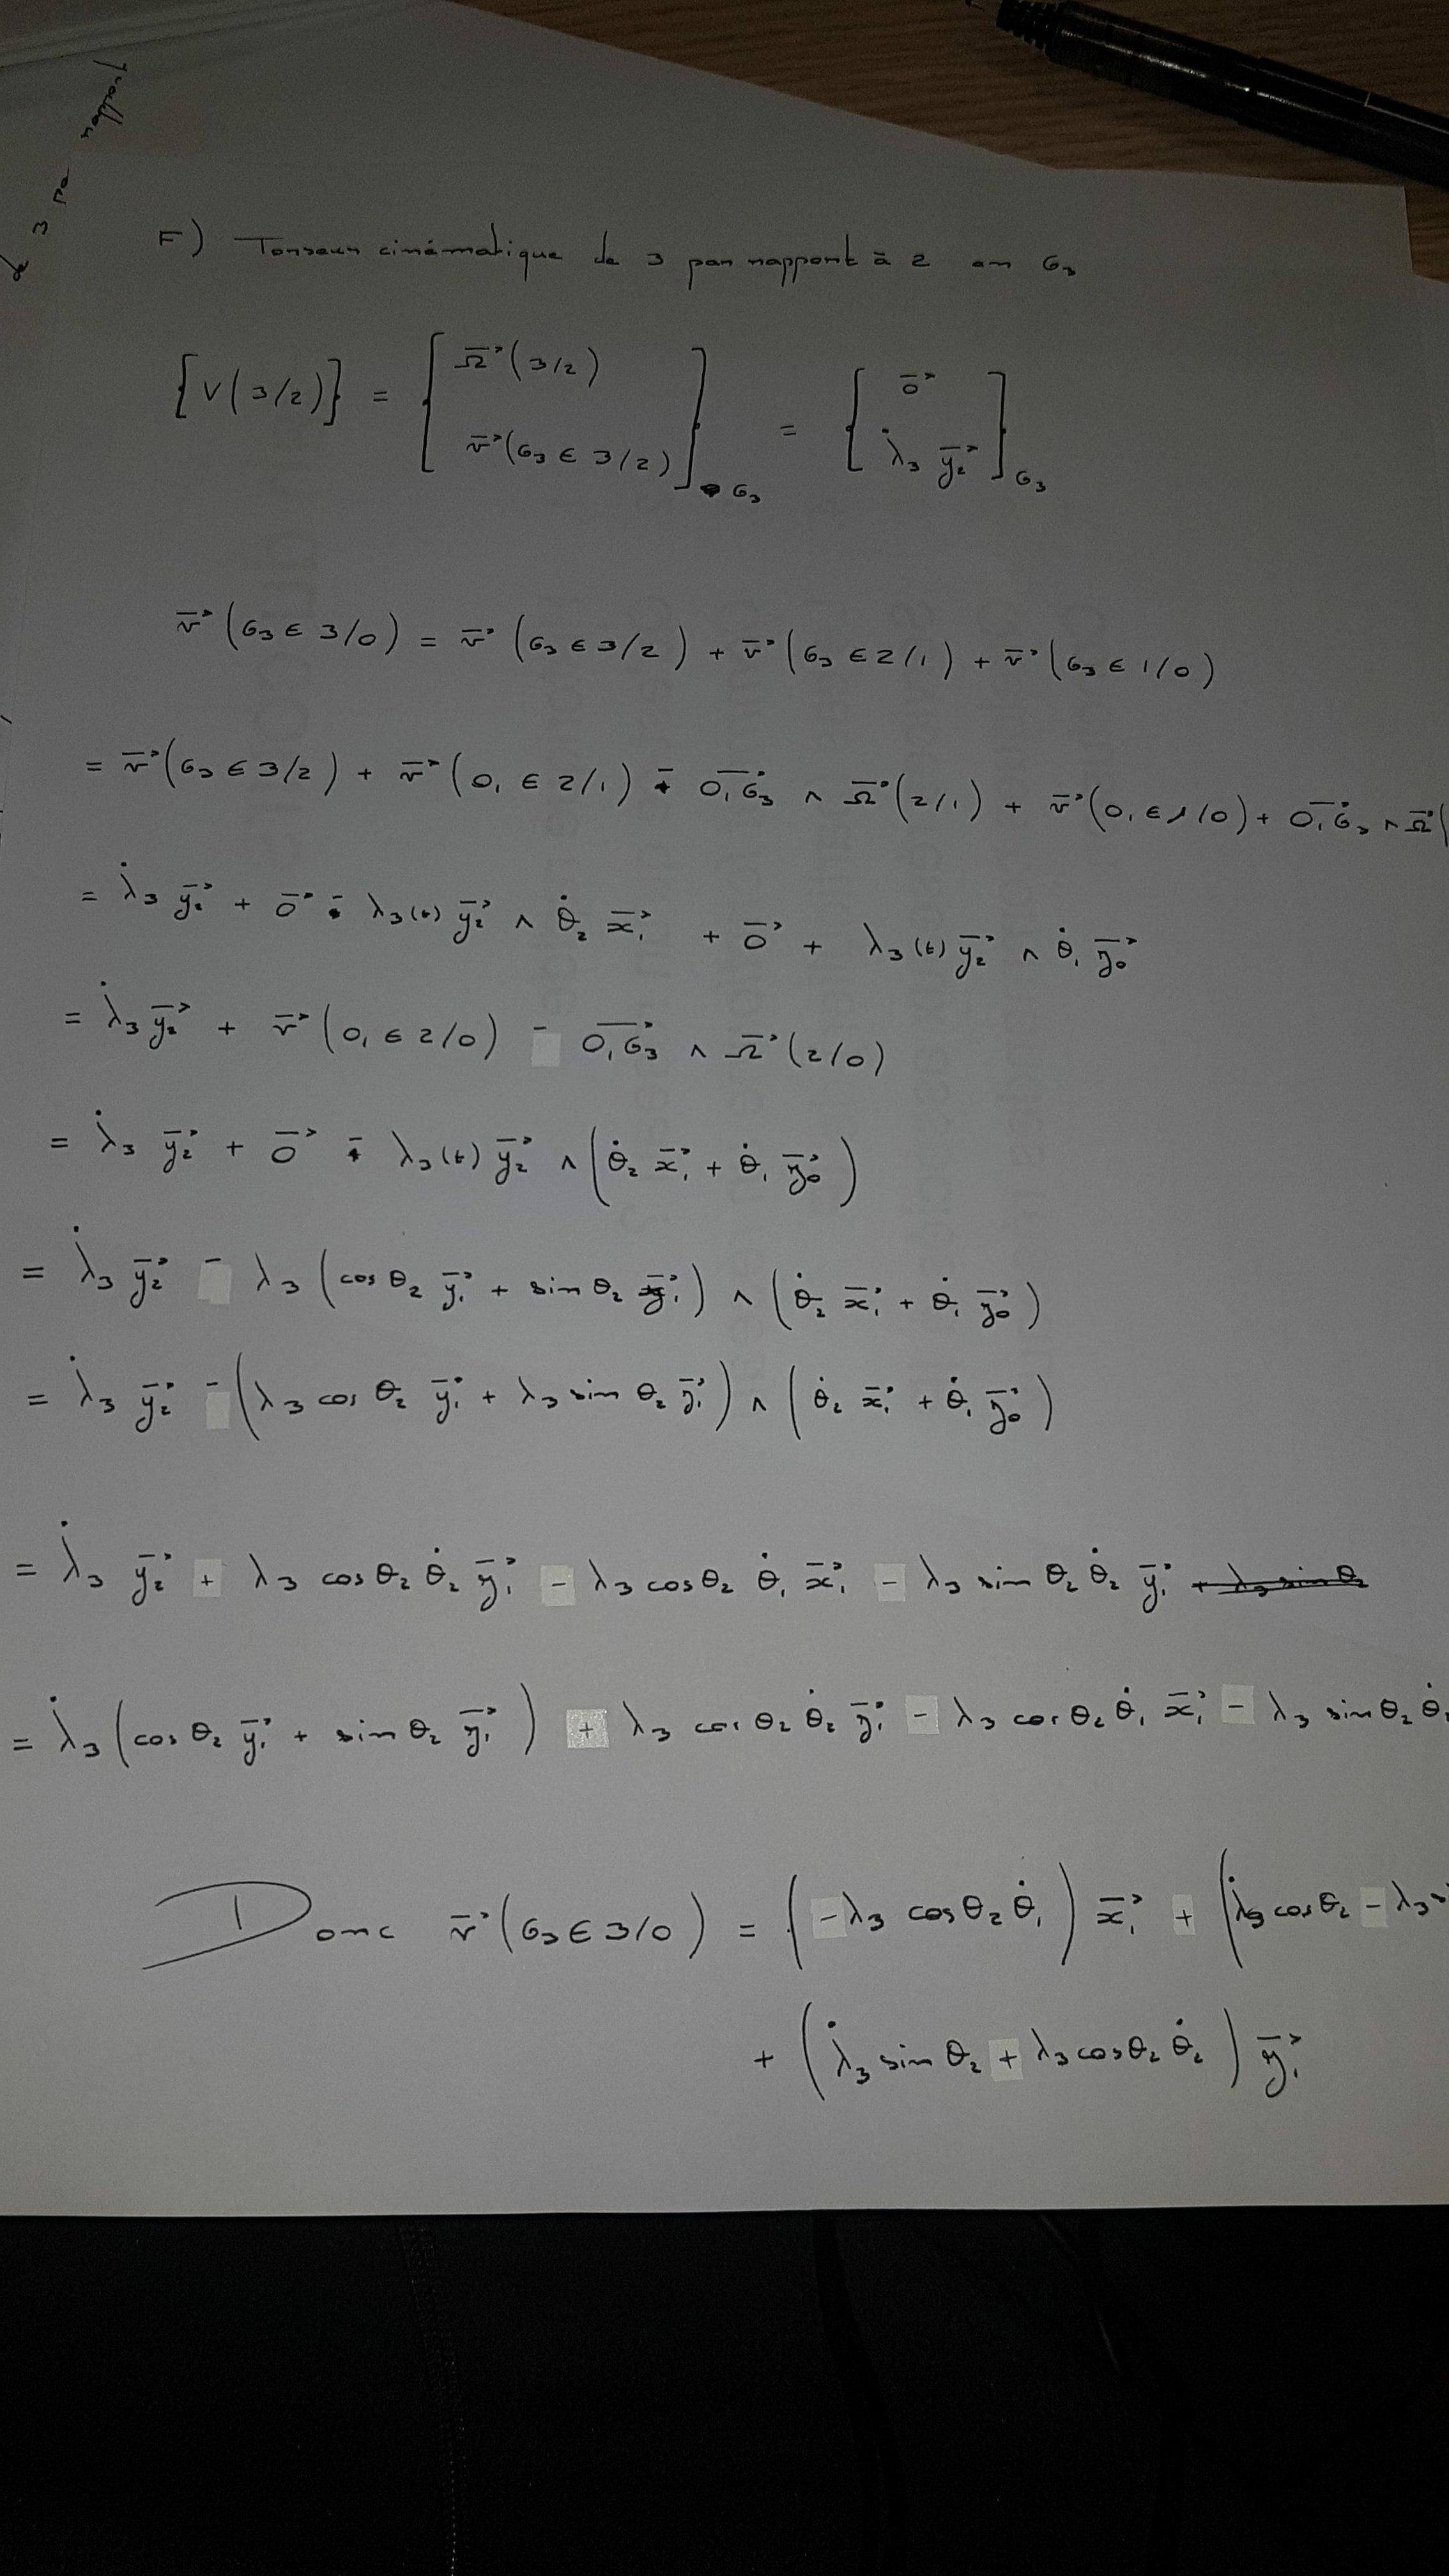 de 3 pa rapport
F) Torseur cinématique de 3 par rapport à 2 en G₃
{V(3/2)} = { Ω⃗(3/2) ; v⃗(G₃ ∈ 3/2) }_G₃ = { 0⃗ ; λ̇₃ y₂⃗ }_G₃
v⃗(G₃ ∈ 3/0) = v⃗(G₃ ∈ 3/2) + v⃗(G₃ ∈ 2/1) + v⃗(G₃ ∈ 1/0)
= v⃗(G₃ ∈ 3/2) + v⃗(O₁ ∈ 2/1) - O₁G₃⃗ ∧ Ω⃗(2/1) + v⃗(O₁ ∈ 1/0) + O₁G₃⃗ ∧ Ω⃗(
= λ̇₃ y₂⃗ + 0⃗ - λ₃(t) y₂⃗ ∧ θ̇₂ x₁⃗ + 0⃗ + λ₃(t) y₂⃗ ∧ θ̇₁ z₀⃗
= λ̇₃ y₂⃗ + v⃗(O₁ ∈ 2/0) - O₁G₃⃗ ∧ Ω⃗(2/0)
= λ̇₃ y₂⃗ + 0⃗ - λ₃(t) y₂⃗ ∧ (θ̇₂ x₁⃗ + θ̇₁ z₀⃗)
= λ̇₃ y₂⃗ - λ₃ (cos θ₂ y₁⃗ + sin θ₂ z₁⃗) ∧ (θ̇₂ x₁⃗ + θ̇₁ z₀⃗)
= λ̇₃ y₂⃗ - (λ₃ cos θ₂ y₁⃗ + λ₃ sin θ₂ z₁⃗) ∧ (θ̇₂ x₁⃗ + θ̇₁ z₀⃗)
= λ̇₃ y₂⃗ + λ₃ cos θ₂ θ̇₂ z₁⃗ - λ₃ cos θ₂ θ̇₁ x₁⃗ - λ₃ sin θ₂ θ̇₂ y₁⃗ + λ₃ sin θ₂
= λ̇₃ (cos θ₂ y₁⃗ + sin θ₂ z₁⃗) + λ₃ cos θ₂ θ̇₂ z₁⃗ - λ₃ cos θ₂ θ̇₁ x₁⃗ - λ₃ sin θ₂ θ̇₂
Donc v⃗(G₃ ∈ 3/0) = (-λ₃ cos θ₂ θ̇₁) x₁⃗ + (λ̇₃ cos θ₂ - λ₃ s
+ (λ̇₃ sin θ₂ + λ₃ cos θ₂ θ̇₂) z₁⃗